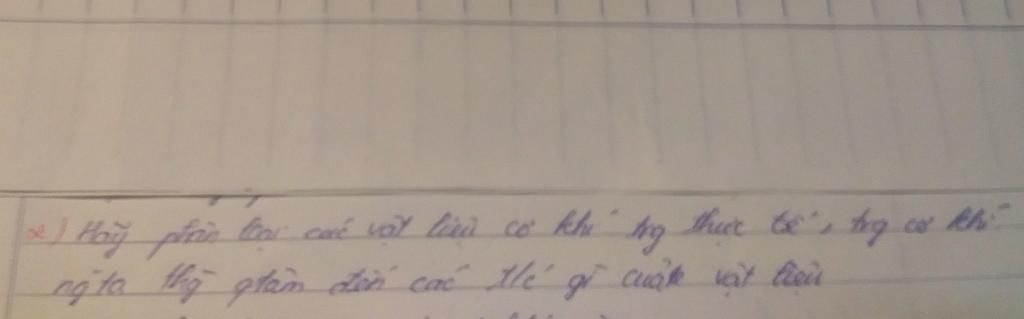 *) Hãy phân loại các vật liệu cơ khí trg thực tế, trg cơ khí
ngta thg qtâm đến các t/c gì của vật liệu